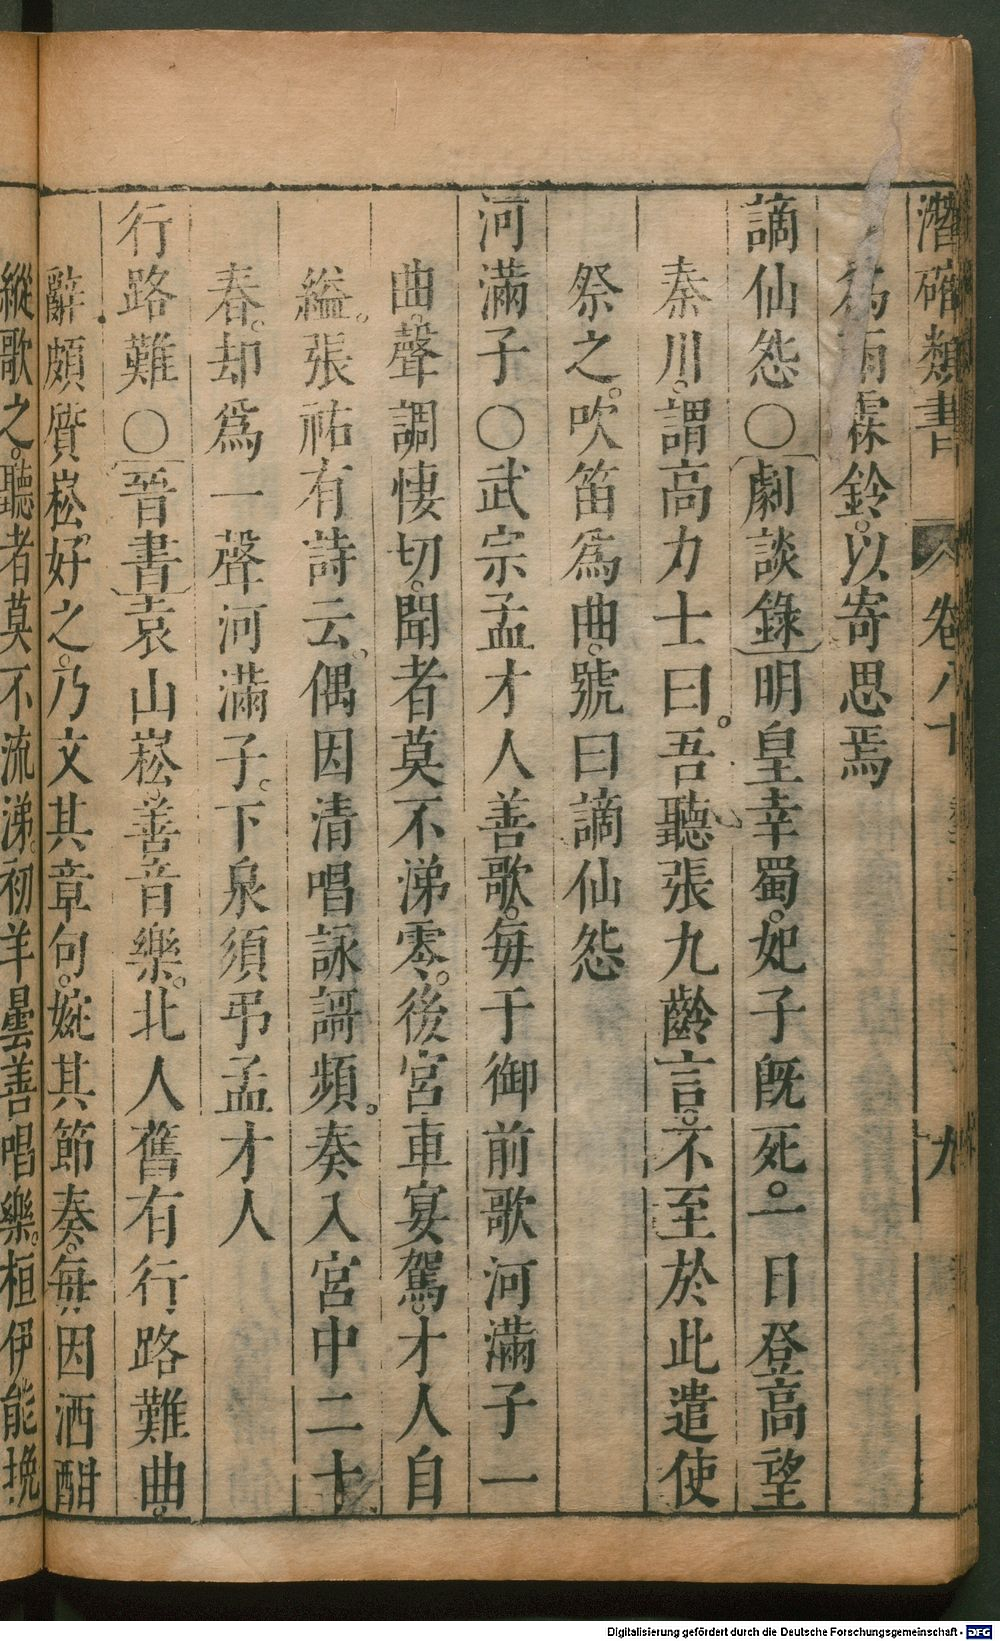 潛確類書 卷八十 九
爲雨霖鈴。以寄思焉
謫仙怨○劇談錄明皇幸蜀。妃子旣死。一日登高望
秦川。謂高力士曰。吾聽張九齡言。不至於此遣使
祭之。吹笛爲曲。號曰謫仙怨
河滿子○武宗孟才人善歌。每于御前歌河滿子一
曲。聲調悽切。聞者莫不涕零。後宮車宴駕。才人自
縊。張祐有詩云。偶因清唱詠謌頻。奏入宮中二十
春。却爲一聲河滿子。下泉須弔孟才人
行路難○晉書袁山崧善音樂。北人舊有行路難曲。
辭頗質崧好之。乃文其章句。婉其節奏。每因酒酣
縱歌之。聽者莫不流涕。初羊曇善唱樂。桓伊能挽
Digitalisierung gefördert durch die Deutsche Forschungsgemeinschaft - DFG